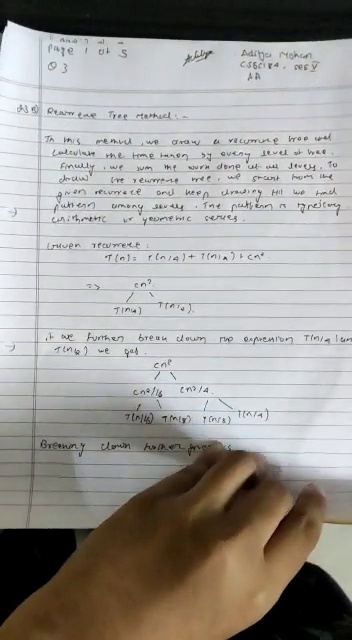 Page 1 of 5
Aditya Mohan
Q3
CSE
Recurrence Tree Method :-
In this method, we draw a recurrence tree and
calculate the time taken by every level of tree.
Finally, we sum the work done at all levels. To
draw the recurrence tree, we start from the
given recurrence and keep drawing till we find
pattern among levels. The pattern is typically
arithmetic or geometric series.
Given recurrence:
T(n) = T(n/4) + T(n/2) + cn²
=> cn²
T(n/4) T(n/2)
if we further break down the expression T(n/4) and
T(n/2) we get.
cn²
cn²/16 cn²/4
T(n/16) T(n/8) T(n/8) T(n/4)
Breaking down further gives us